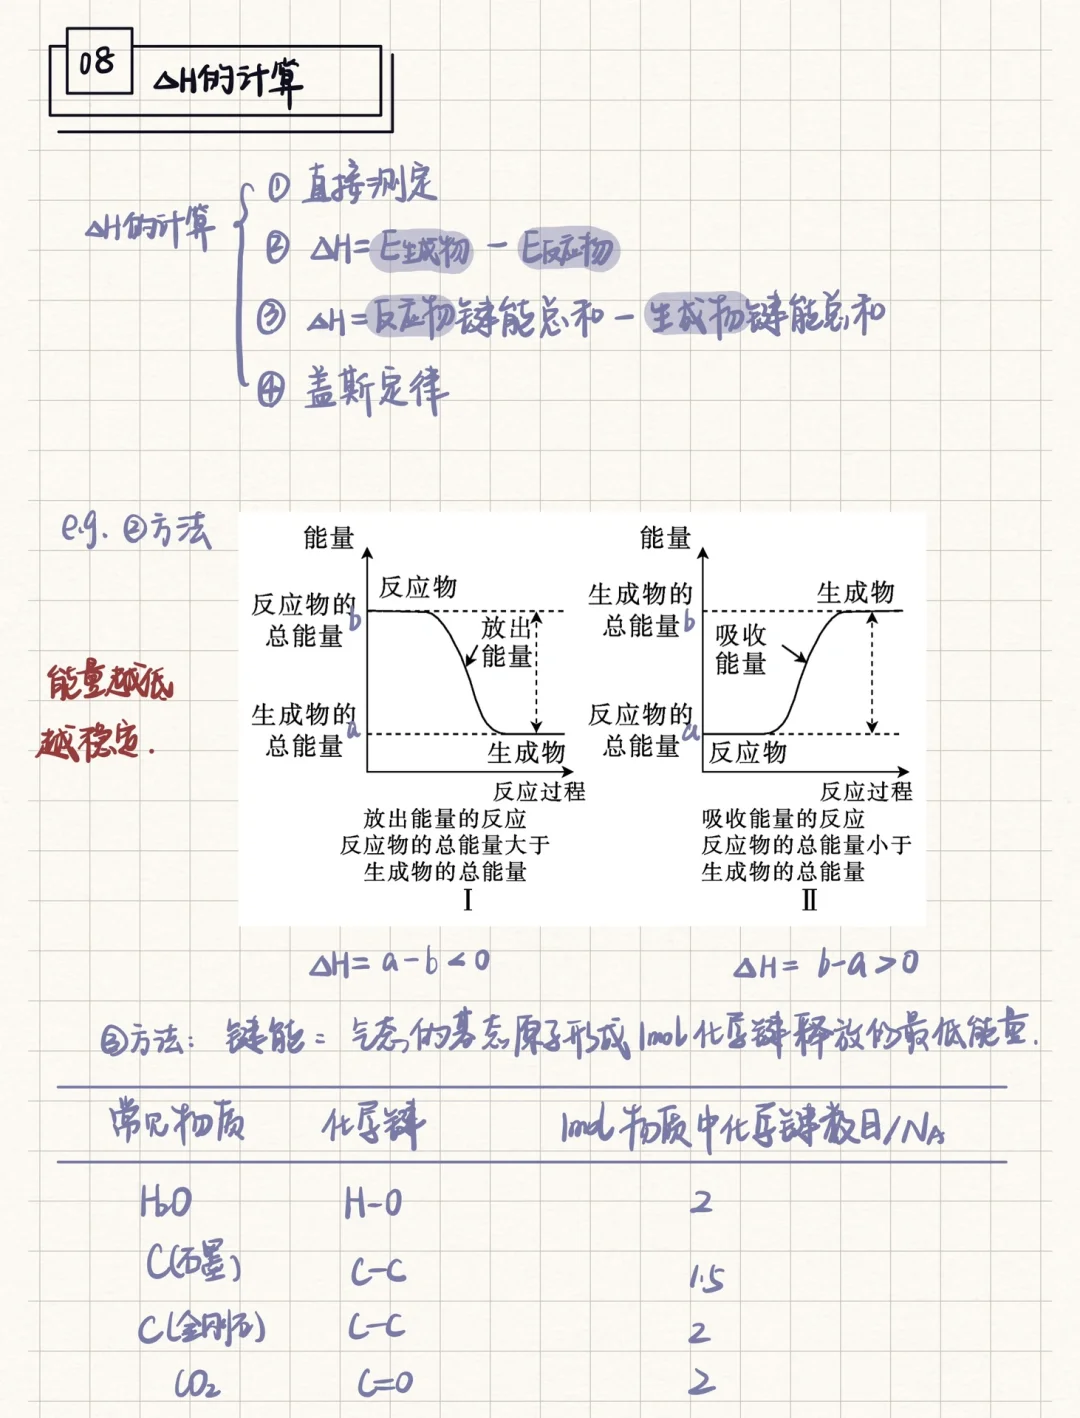 08
△H的计算
△H的计算
① 直接测定
② △H=E生成物 - E反应物
③ △H=反应物键能总和-生成物键能总和
④ 盖斯定律
e.g. ②方法
能量越低
越稳定.
能量
反应物的
总能量
b
反应物
放出
能量
生成物的
总能量
a
生成物
反应过程
放出能量的反应
反应物的总能量大于
生成物的总能量
I
能量
生成物的
总能量
b
生成物
吸收
能量
反应物的
总能量
a
反应物
反应过程
吸收能量的反应
反应物的总能量小于
生成物的总能量
II
△H= a-b<0
△H= b-a>0
③方法: 键能= 气态的基态原子形成1mol化学键释放的最低能量.
常见物质 化学键 1mol物质中化学键数目/NA
H₂O H-O 2
C(石墨) C-C 1.5
C(金刚石) C-C 2
CO₂ C=O 2